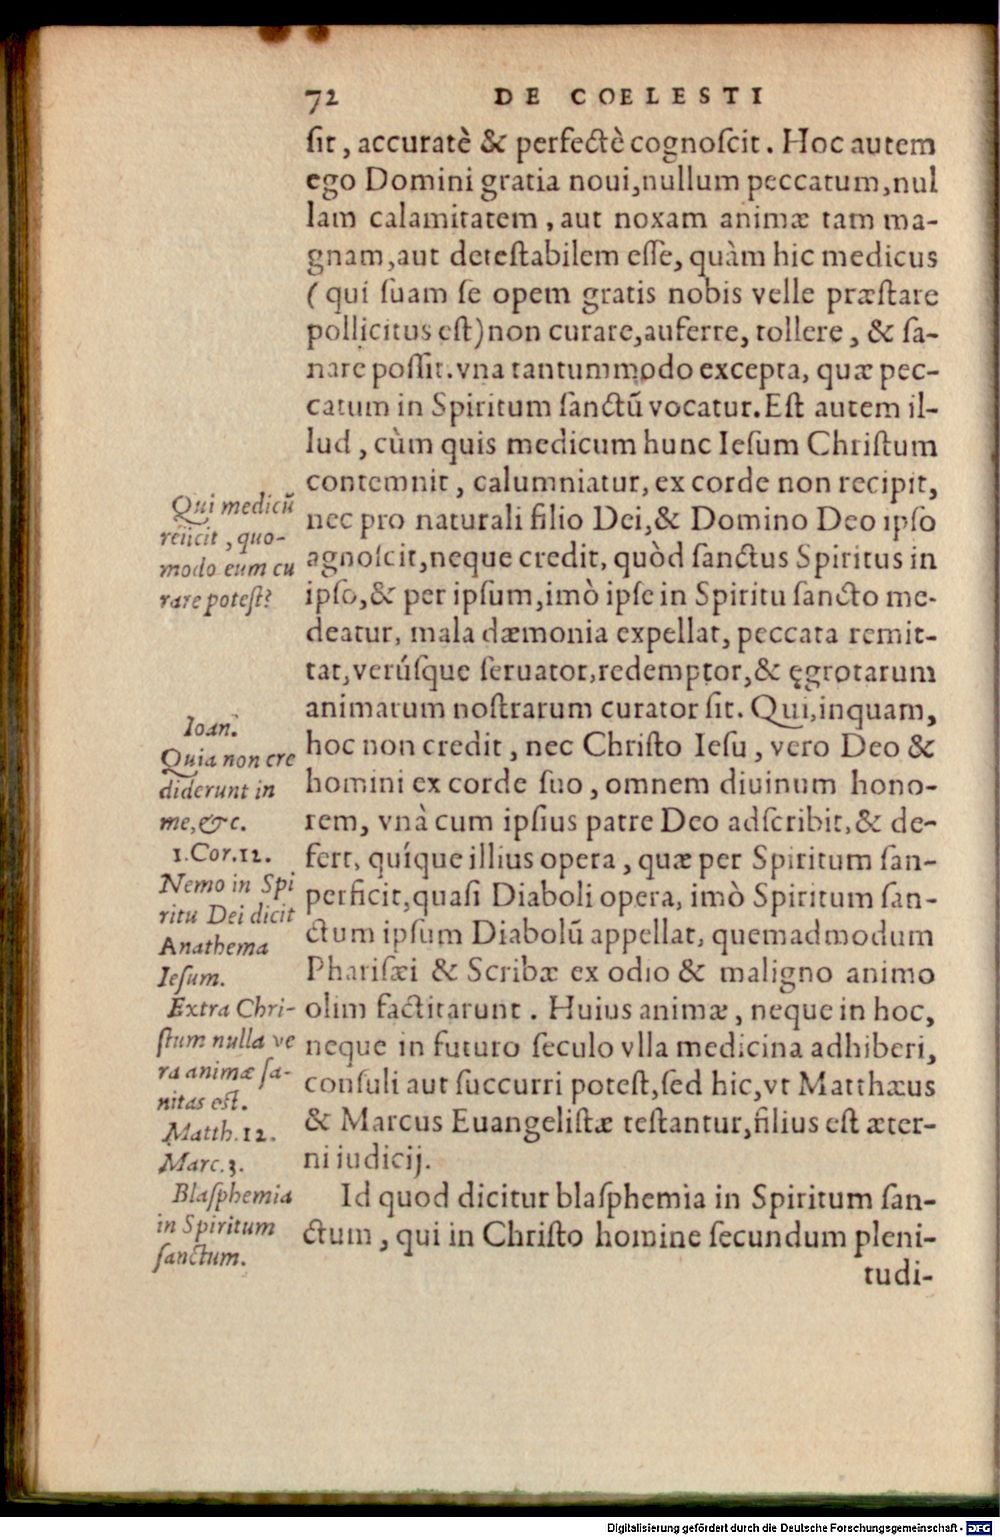 72 DE COELESTI
ſit, accuratè & perfectè cognoſcit. Hoc autem
ego Domini gratia noui, nullum peccatum, nul
lam calamitatem, aut noxam animæ tam ma-
gnam, aut deteſtabilem eſſe, quàm hic medicus
(qui ſuam ſe opem gratis nobis velle præſtare
pollicitus eſt) non curare, auferre, tollere, & ſa-
nare poſſit. vna tantummodo excepta, quæ pec-
catum in Spiritum ſanctũ vocatur. Eſt autem il-
lud, cùm quis medicum hunc Ieſum Chriſtum
contemnit, calumniatur, ex corde non recipit,
nec pro naturali filio Dei, & Domino Deo ipſo
agnoſcit, neque credit, quòd ſanctus Spiritus in
ipſo, & per ipſum, imò ipſe in Spiritu ſancto me-
deatur, mala dæmonia expellat, peccata remit-
tat, verúſque ſeruator, redemptor, & ęgrotarum
animarum noſtrarum curator ſit. Qui, inquam,
hoc non credit, nec Chriſto Ieſu, vero Deo &
homini ex corde ſuo, omnem diuinum hono-
rem, vnà cum ipſius patre Deo adſcribit, & de-
fert, quíque illius opera, quæ per Spiritum ſan-
perficit, quaſi Diaboli opera, imò Spiritum ſan-
ctum ipſum Diabolũ appellat, quemadmodum
Phariſæi & Scribæ ex odio & maligno animo
olim factitarunt. Huius animæ, neque in hoc,
neque in futuro ſeculo vlla medicina adhiberi,
conſuli aut ſuccurri poteſt, ſed hic, vt Matthæus
& Marcus Euangeliſtæ teſtantur, filius eſt æter-
ni iudicij.
Id quod dicitur blaſphemia in Spiritum ſan-
ctum, qui in Chriſto homine ſecundum pleni-
tudi-
Qui medicũ
reiicit, quo-
modo eum cu
rare poteſt?
Ioan.
Quia non cre
diderunt in
me, &c.
1. Cor. 12.
Nemo in Spi
ritu Dei dicit
Anathema
Ieſum.
Extra Chri-
ſtum nulla ve
ra animæ ſa-
nitas eſt.
Matth. 12.
Marc. 3.
Blaſphemia
in Spiritum
ſanctum.
Digitalisierung gefördert durch die Deutsche Forschungsgemeinschaft - DFG